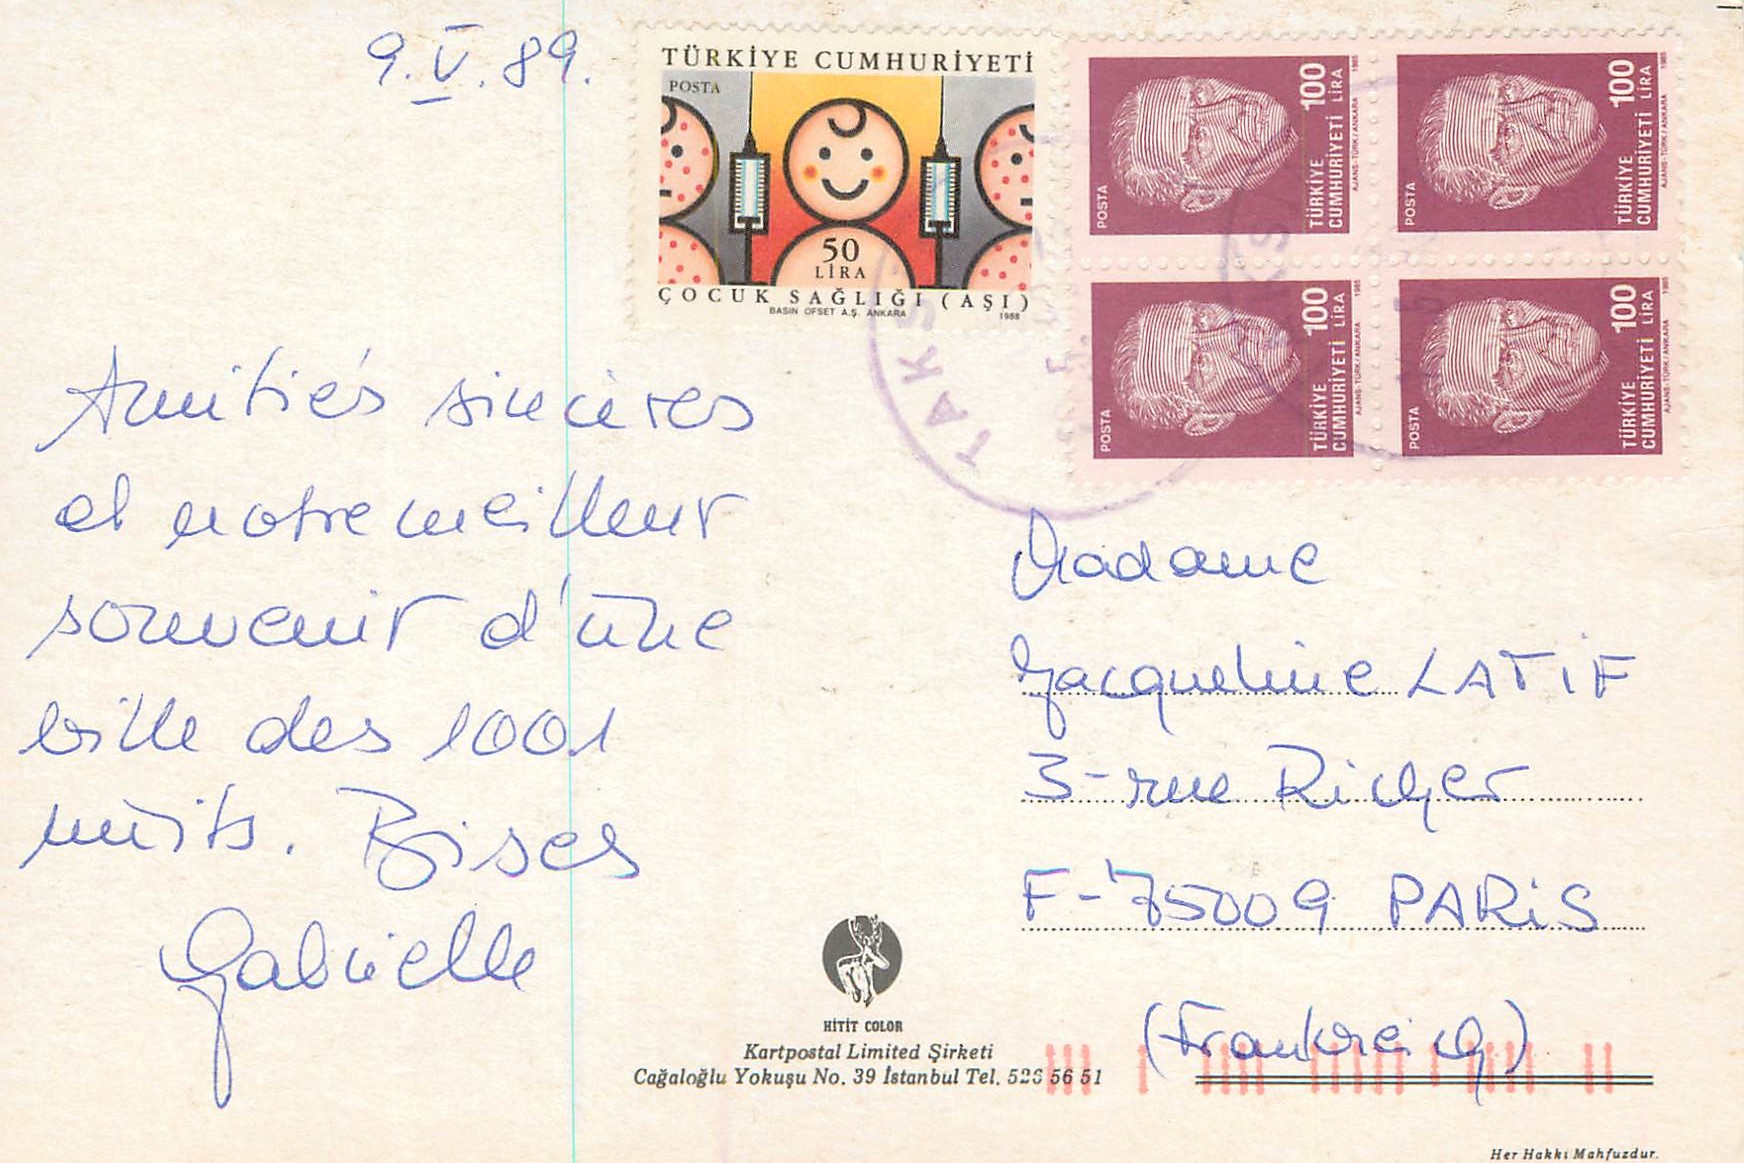 9.V.89.
TÜRKİYE CUMHURİYETİ
POSTA
50
LİRA
ÇOCUK SAĞLIĞI (AŞI)
BASIN OFSET A.Ş. ANKARA
1988
POSTA
TÜRKİYE
CUMHURİYETİ
100
LİRA
AJANS-TÜRK/ANKARA
1985
POSTA
TÜRKİYE
CUMHURİYETİ
100
LİRA
AJANS-TÜRK/ANKARA
1985
POSTA
TÜRKİYE
CUMHURİYETİ
100
LİRA
AJANS-TÜRK/ANKARA
1985
POSTA
TÜRKİYE
CUMHURİYETİ
100
LİRA
AJANS-TÜRK/ANKARA
1985
TAKS
Amitiés sincères
et notre meilleur
souvenir d'une
ville des 1001
nuits. Bises
Gabrielle
Madame
Jacqueline LATiF
3-rue Richer
F-75009 PARiS
(Frankreich)
HİTİT COLOR
Kartpostal Limited Şirketi
Cağaloğlu Yokuşu No. 39 İstanbul Tel. 526 56 51
Her Hakkı Mahfuzdur.